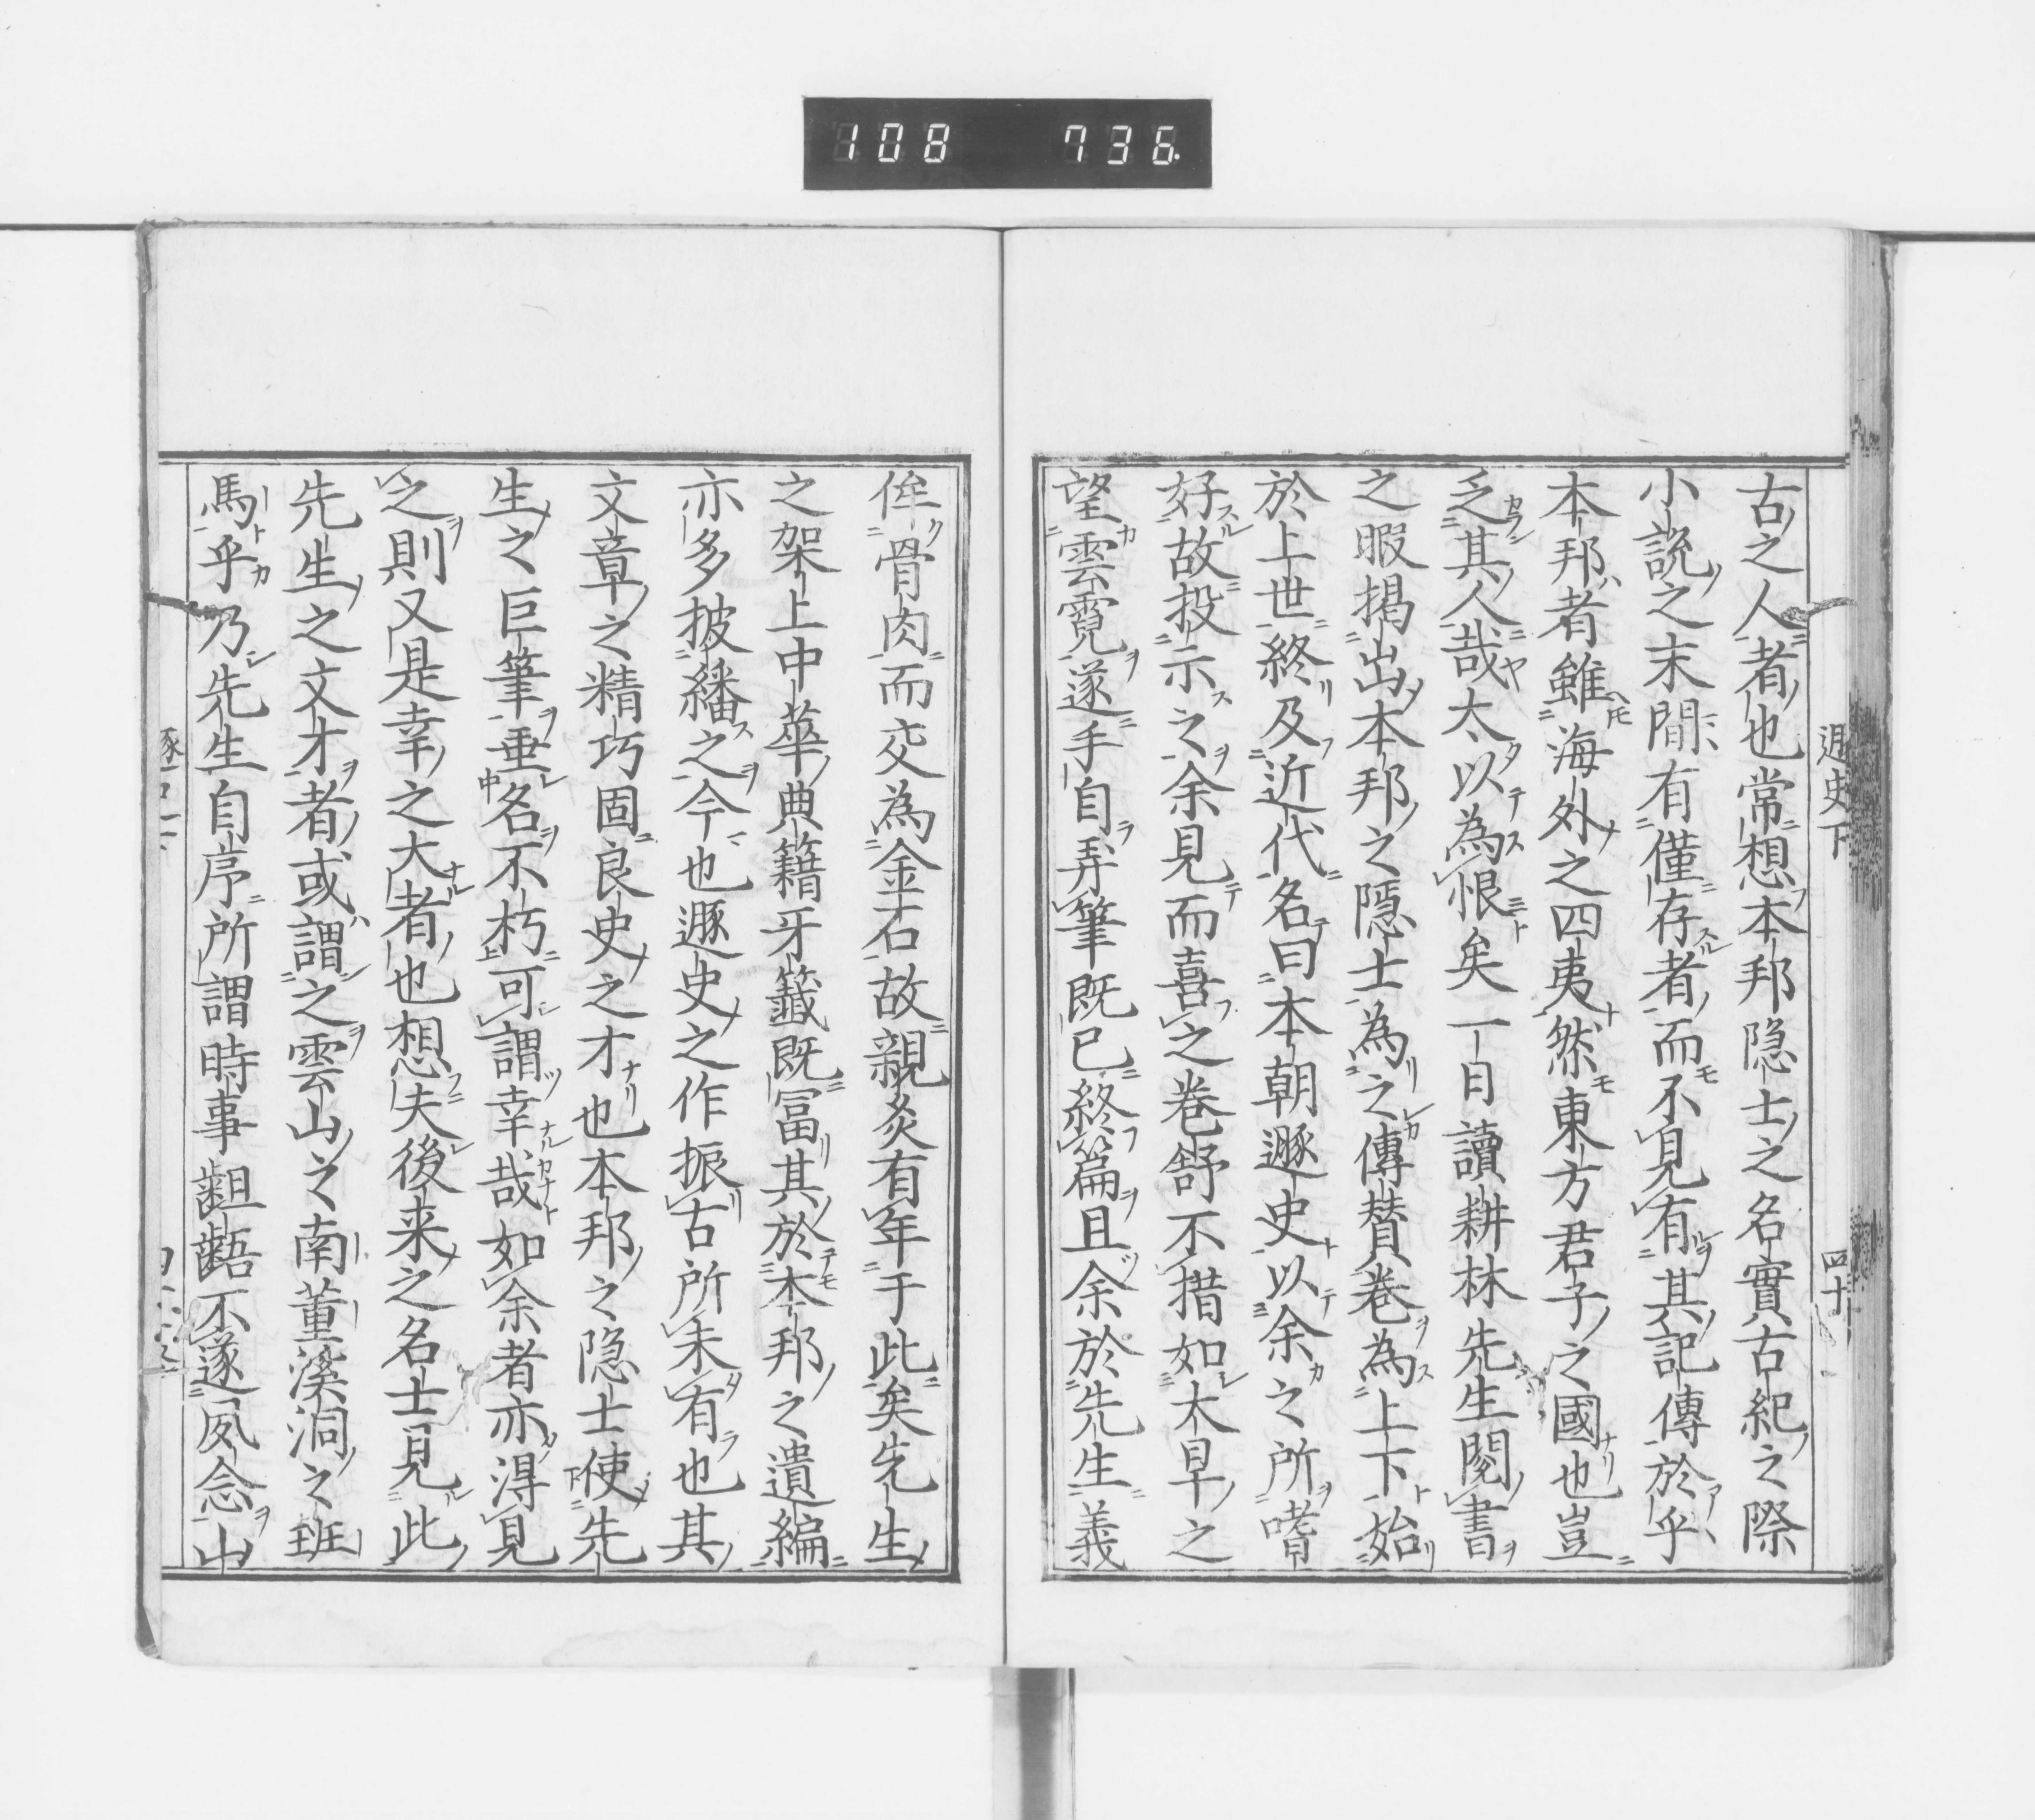 108 736
遯史下
四十
古之人者也常想本邦隠士之名實古紀之際
小説之末間有僅存者而不見有其記傳於乎
本邦者雖海外之四夷然東方君子之國也豈
乏其人哉太以為恨矣一日讀耕林先生閲書
之暇掲出本邦之隱士為之傳賛卷為上下始
於上世終及近代名曰本朝遯史以余之所嗜
好故投示之余見而喜之巻舒不措如大旱之
望雲霓遂手自弄筆既已終篇且余於先生義
侔骨肉而交為金石故親炙有年于此矣先生
之架上中華典籍牙籤既冨其於本邦之遺編
亦多披繙之今也遯史之作振古所未有也其
文章之精巧固良史之才也本邦之隐士使先
生之巨筆垂名不朽可謂幸哉如余者亦得見
之則又是幸之大者也想夫後来之名士見此
先生之文才者或謂之雲山之南董藻洞之班
馬乎乃先生自序所謂時事齟齬不遂夙念山